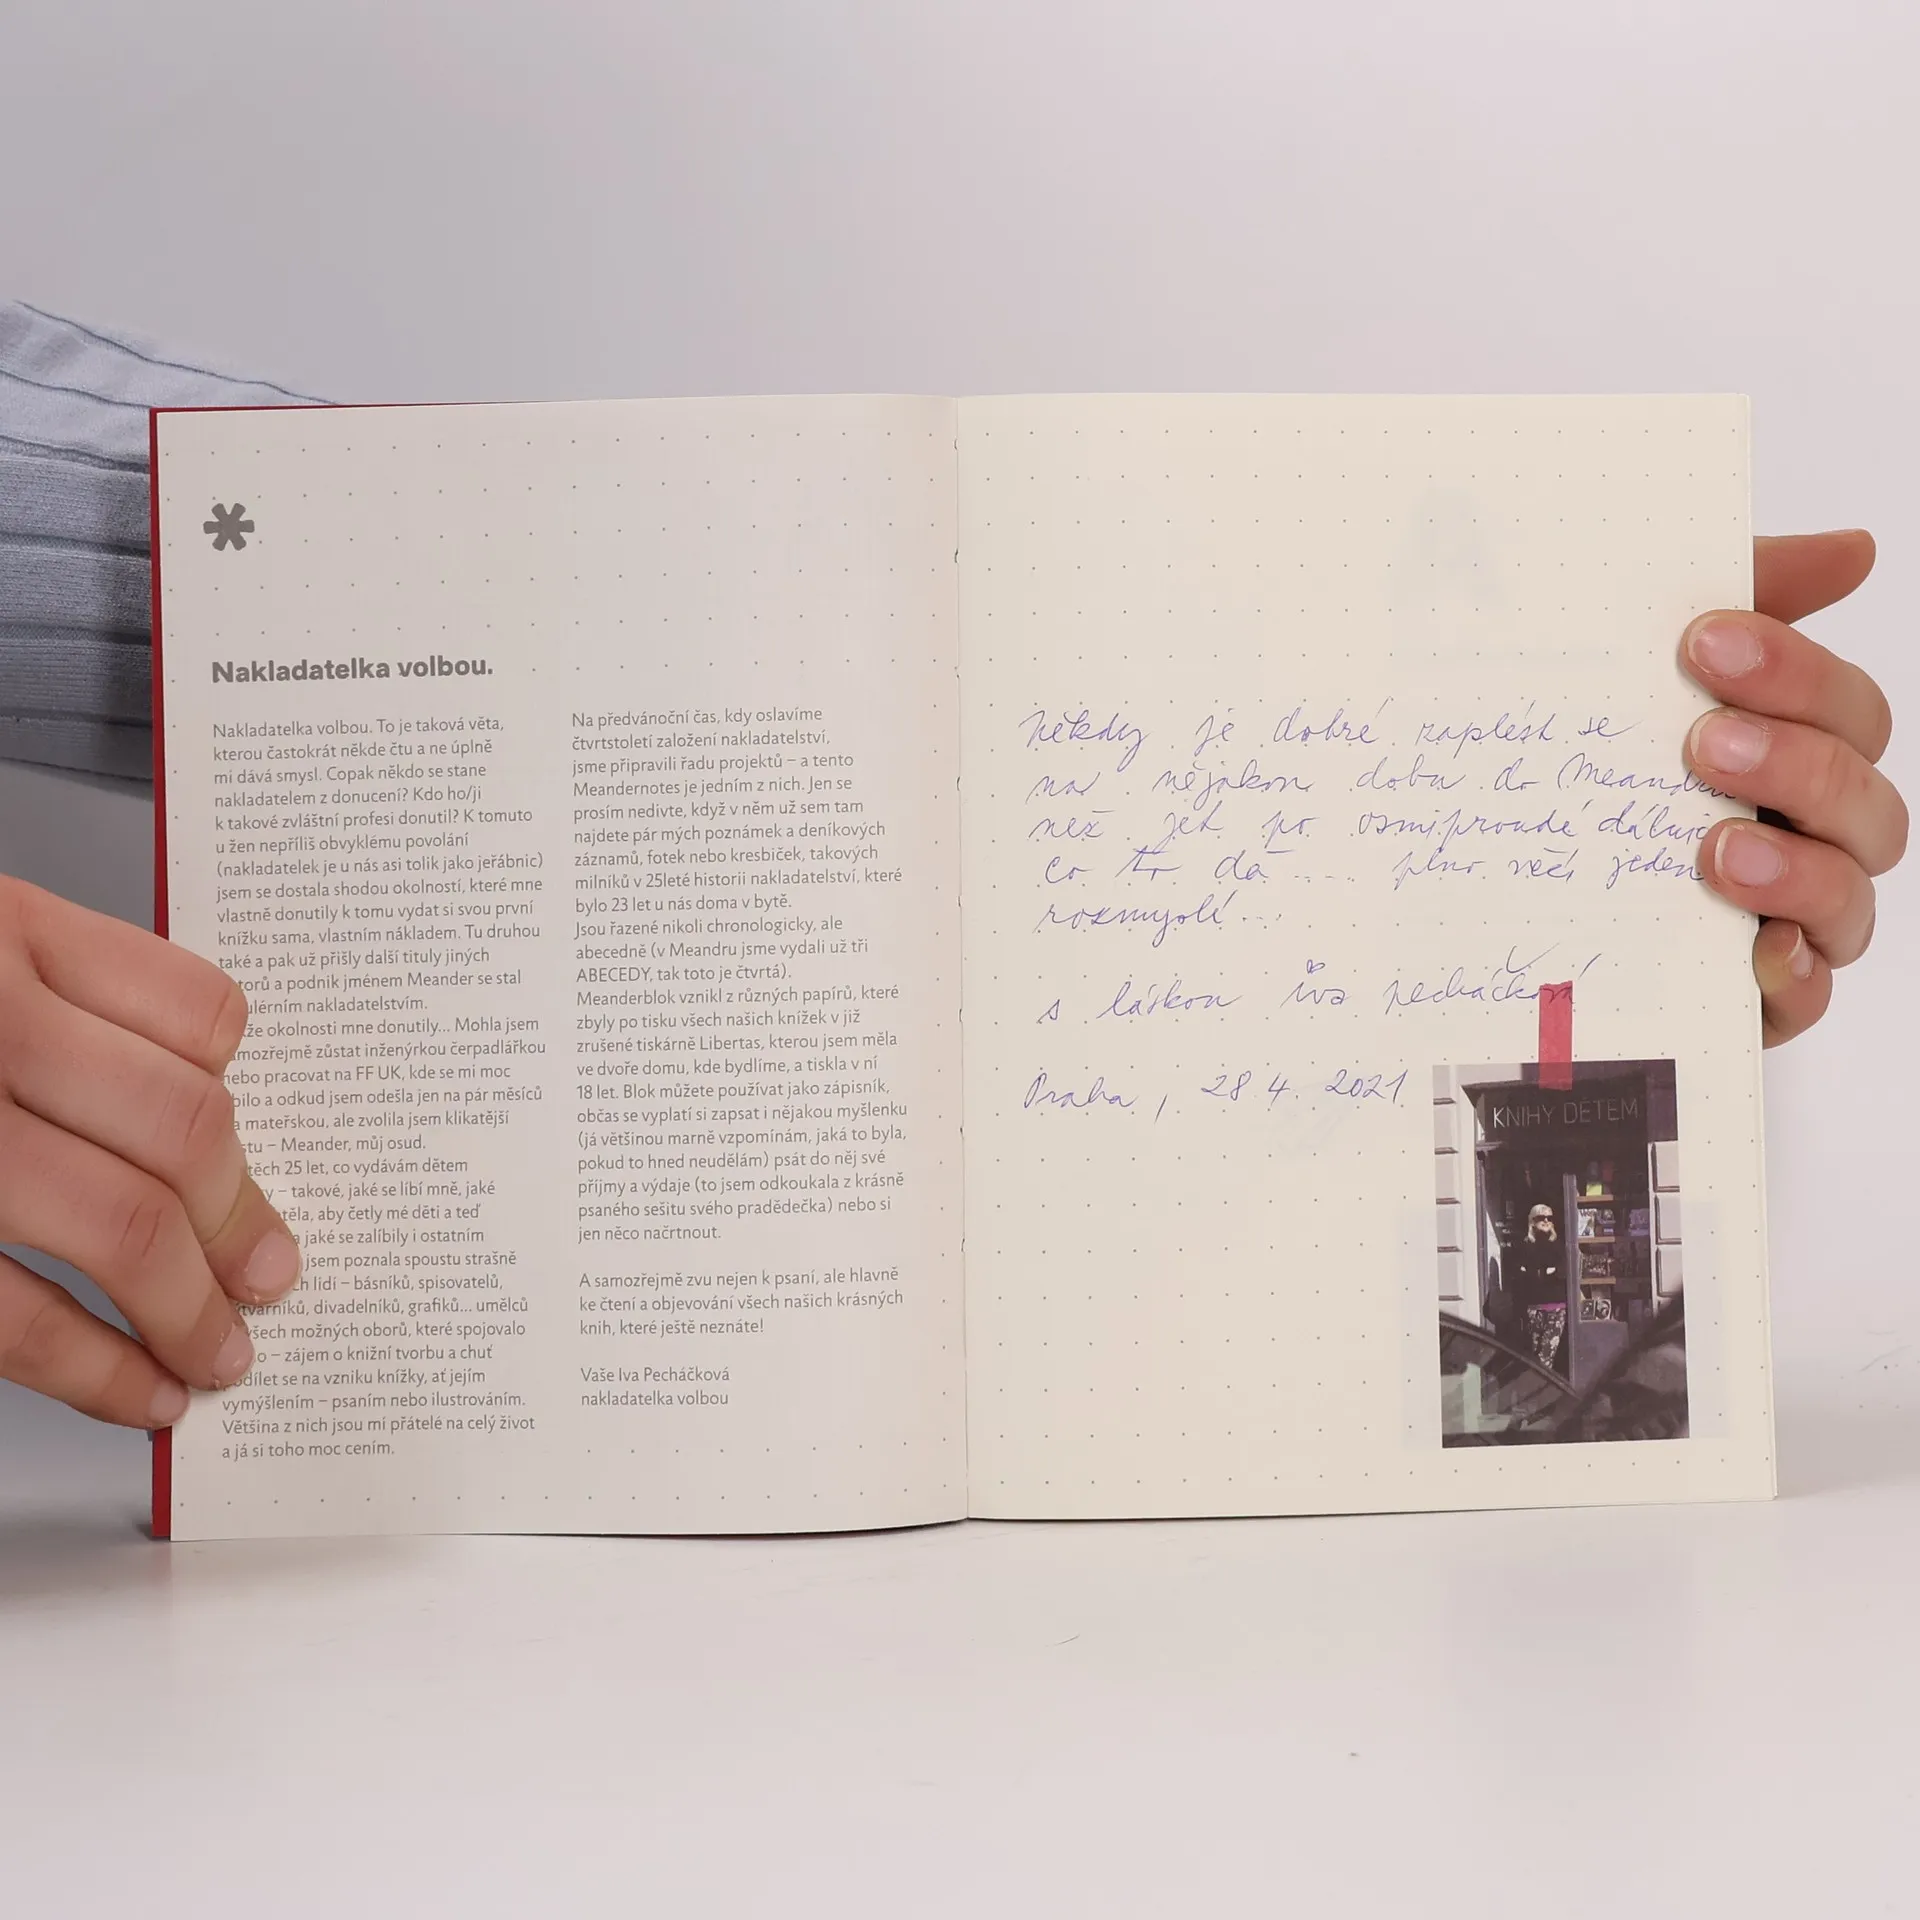 Nakladatelka volbou.
Nakladatelka volbou. To je taková věta,
kterou častokrát někde čtu a ne úplně
mi dává smysl. Copak někdo se stane
nakladatelem z donucení? Kdo ho/ji
k takové zvláštní profesi donutil? K tomuto
u žen nepříliš obvyklému povolání
(nakladatelek je u nás asi tolik jako jeřábnic)
jsem se dostala shodou okolností, které mne
vlastně donutily k tomu vydat si svou první
knížku sama, vlastním nákladem. Tu druhou
také a pak už přišly další tituly jiných
torů a podnik jménem Meander se stal
ulérním nakladatelstvím.
že okolnosti mne donutily... Mohla jsem
mozřejmě zůstat inženýrkou čerpadlářkou
nebo pracovat na FF UK, kde se mi moc
bilo a odkud jsem odešla jen na pár měsíců
a mateřskou, ale zvolila jsem klikatější
stu – Meander, můj osud.
těch 25 let, co vydávám dětem
y – takové, jaké se líbí mně, jaké
těla, aby četly mé děti a teď
a jaké se zalíbily i ostatním
jsem poznala spoustu strašně
ch lidí – básníků, spisovatelů,
tvarníků, divadelníků, grafiků... umělců
všech možných oborů, které spojovalo
o – zájem o knižní tvorbu a chuť
odílet se na vzniku knížky, ať jejím
vymýšlením – psaním nebo ilustrováním.
Většina z nich jsou mí přátelé na celý život
a já si toho moc cením.
Na předvánoční čas, kdy oslavíme
čtvrtstoletí založení nakladatelství,
jsme připravili řadu projektů – a tento
Meandernotes je jedním z nich. Jen se
prosím nedivte, když v něm už sem tam
najdete pár mých poznámek a deníkových
záznamů, fotek nebo kresbiček, takových
milníků v 25leté historii nakladatelství, které
bylo 23 let u nás doma v bytě.
Jsou řazené nikoli chronologicky, ale
abecedně (v Meandru jsme vydali už tři
ABECEDY, tak toto je čtvrtá).
Meanderblok vznikl z různých papírů, které
zbyly po tisku všech našich knížek v již
zrušené tiskárně Libertas, kterou jsem měla
ve dvoře domu, kde bydlíme, a tiskla v ní
18 let. Blok můžete používat jako zápisník,
občas se vyplatí si zapsat i nějakou myšlenku
(já většinou marně vzpomínám, jaká to byla,
pokud to hned neudělám) psát do něj své
příjmy a výdaje (to jsem odkoukala z krásně
psaného sešitu svého pradědečka) nebo si
jen něco načrtnout.
A samozřejmě zvu nejen k psaní, ale hlavně
ke čtení a objevování všech našich krásných
knih, které ještě neznáte!
Vaše Iva Pecháčková
nakladatelka volbou
Někdy je dobré zaplést se
na nějakou dobu do Meandru
než jet po osmiproudé dálnic
co to dá .... plno věcí jeden
rozmyslí...
s láskou iva pecháčková
Praha, 28. 4. 2021
KNIHY DĚTEM